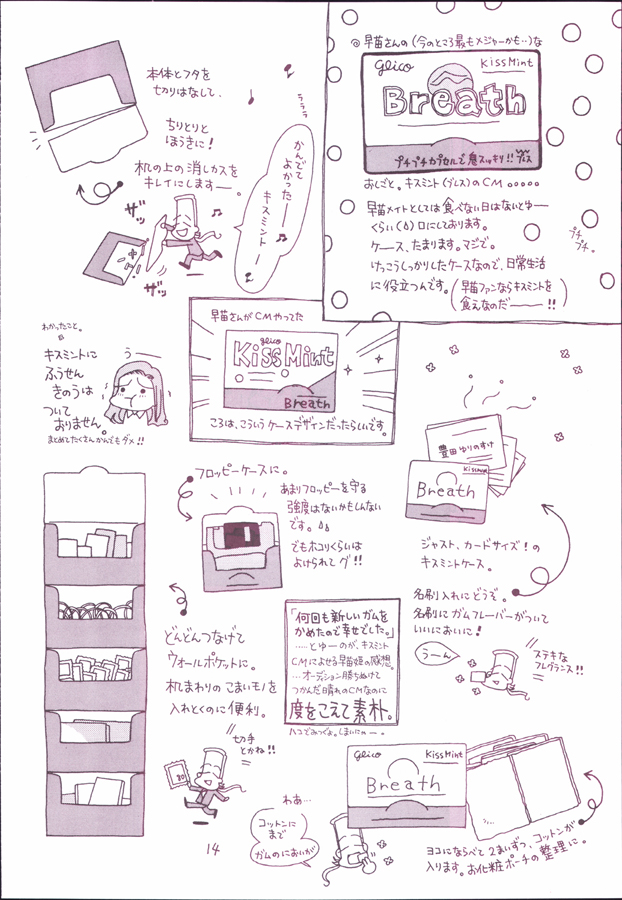 ◎早苗さんの(今のところ最もメジャーかも…)な
glico
KissMint
Breath
プチプチカプセルで息スッキリ!!ブレス
おしごと。キスミント(ブレス)のCM。。。。。
早苗メイトとしては食べない日はないとゆー
くらい(う)口にしております。
ケース、たまります。マジで。
けっこうしっかりしたケースなので、日常生活
に役立つんです。
(早苗ファンならキスミントを
食えなのだーーー!!)
プチ
プチ。
本体とフタを
切りはなして、
ちりとりと
ほうきに!
机の上の消しカスを
キレイにしますー。
ザッ
ザッ
ラララ
かんでて
よかったー
キスミントー
早苗さんがCMやってた
glico
Kiss Mint
Breath
ころは、こういうケースデザインだったらしいです。
わかったこと。
キスミントに
ふうせん
きのうは
ついて
おりません。
まとめてたくさんかんでもダメ!!
うー
フロッピーケースに。
あまりフロッピーを守る
強度はないかもしんない
です。
でもホコリくらいは
よけられてグ!!
豊田ゆりのすけ
KissMint
Breath
ジャスト、カードサイズ!の
キスミントケース。
名刺入れにどうぞ。
名刺にガムフレーバーがついて
いいにおいに!
うーん
ステキな
フレグランス!!
どんどんつなげて
ウォールポケットに。
机まわりのこまいモノを
入れとくのに便利。
切手
とかね!!
80
「何回も新しいガムを
かめたので幸せでした。」
……とゆーのが、キスミント
CMによせる早苗姫の感想。
…オーディション勝ちぬけて
つかんだ晴れのCMなのに
度をこえて素朴。
ハコでみつくよ。しまいにゃー。
glico
KissMint
Breath
わあ…
コットンに
まで
ガムのにおいが
ヨコにならべて2まいずつ、コットンが
入ります。お化粧ポーチの整理に。
14